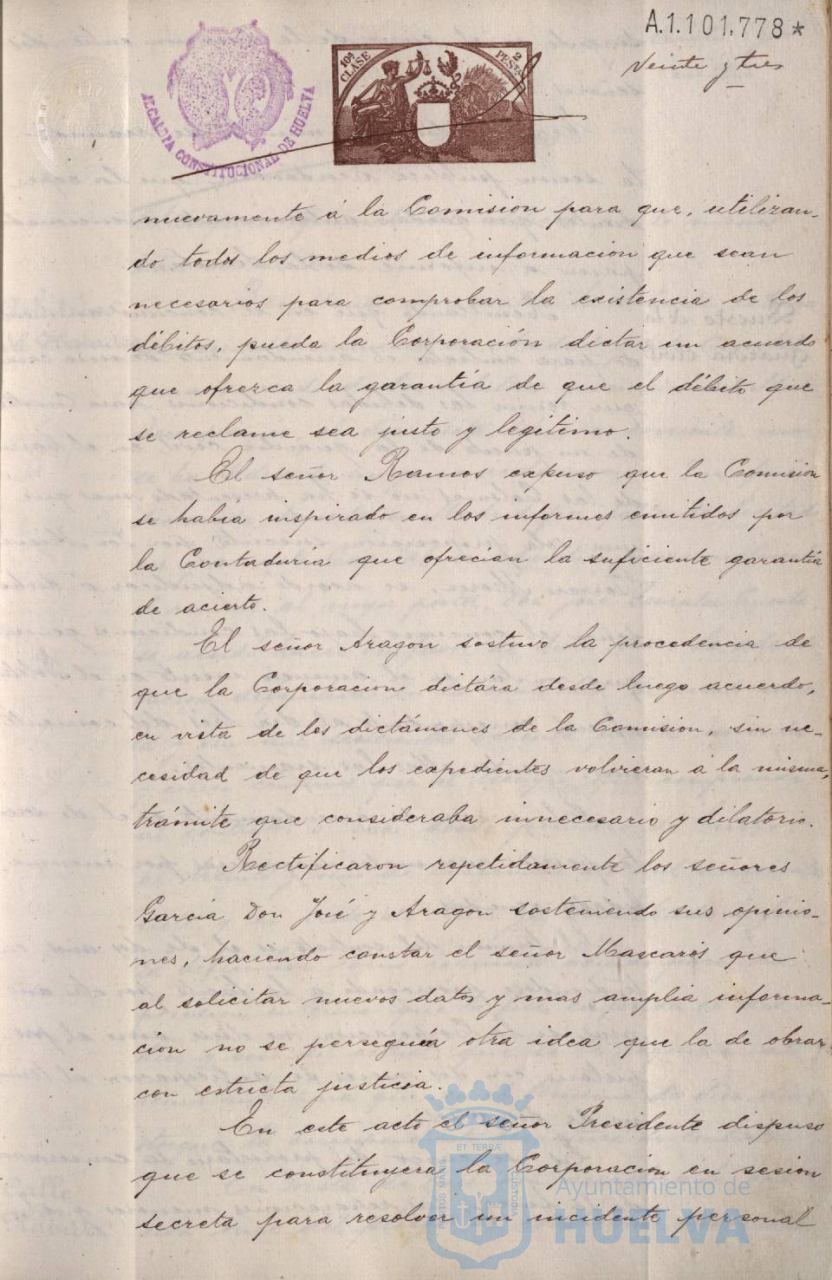 A.1.101.778*
Veinte y tres
ALCALDIA CONSTITUCIONAL DE HUELVA
10ª CLASE
2 PESTAS
nuevamente á la Comision para que, utilizan-
do todos los medios de informacion que sean
necesarios para comprobar la existencia de los
débitos, pueda la Corporación dictar un acuerdo
que ofrezca la garantía de que el débito que
se reclame sea justo y legítimo.
El señor Ramos expuso que la Comision
se había inspirado en los informes emitidos por
la Contaduría que ofrecian la suficiente garantía
de acierto.
El señor Aragon sostuvo la procedencia de
que la Corporacion dictára desde luego acuerdo,
en vista de los dictámenes de la Comision, sin ne-
cesidad de que los expedientes volvieran á la misma,
trámite que consideraba innecesario y dilatorio.
Rectificaron repetidamente los señores
García Don José y Aragon sosteniendo sus opinio-
nes, haciendo constar el señor Mascarós que
al solicitar nuevos datos y mas amplia informa-
cion no se perseguía otra idea que la de obrar
con estricta justicia.
En este acto el señor Presidente dispuso
que se constituyera la Corporacion en sesion
secreta para resolver un incidente personal
Ayuntamiento de
HUELVA